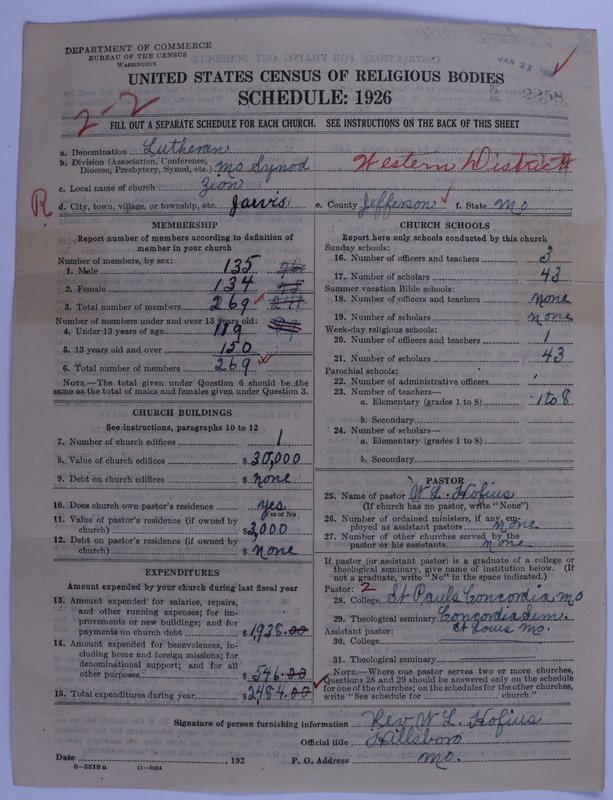 DEPARTMENT OF COMMERCE
BUREAU OF THE CENSUS
WASHINGTON
JAN 27 192
UNITED STATES CENSUS OF RELIGIOUS BODIES
SCHEDULE: 1926
2258
2-2
FILL OUT A SEPARATE SCHEDULE FOR EACH CHURCH. SEE INSTRUCTIONS ON THE BACK OF THIS SHEET
a. Denomination Lutheran
b. Division (Association, Conference, Diocese, Presbytery, Synod, etc.) Mo Synod Western District
c. Local name of church Zion
R d. City, town, village, or township, etc. Jarvis e. County Jefferson f. State Mo
MEMBERSHIP
Report number of members according to definition of
member in your church
Number of members, by sex:
1. Male 135
2. Female 134
3. Total number of members 269
Number of members under and over 13 years old:
4. Under 13 years of age 119
5. 13 years old and over 150
6. Total number of members 269
NOTE.—The total given under Question 6 should be the
same as the total of males and females given under Question 3.
CHURCH BUILDINGS
See instructions, paragraphs 10 to 12
7. Number of church edifices 1
8. Value of church edifices $30,000
9. Debt on church edifices $ none
10. Does church own pastor's residence yes
Yes or No
11. Value of pastor's residence (if owned by
church) $3,000
12. Debt on pastor's residence (if owned by
church) $ none
EXPENDITURES
Amount expended by your church during last fiscal year
13. Amount expended for salaries, repairs,
and other running expenses; for im-
provements or new buildings; and for
payments on church debt $1,938.00
14. Amount expended for benevolences, in-
cluding home and foreign missions; for
denominational support; and for all
other purposes $546.00
15. Total expenditures during year $2484.00
CHURCH SCHOOLS
Report here only schools conducted by this church
Sunday schools:
16. Number of officers and teachers 3
17. Number of scholars 43
Summer vacation Bible schools:
18. Number of officers and teachers none
19. Number of scholars none
Week-day religious schools:
20. Number of officers and teachers 1
21. Number of scholars 43
Parochial schools:
22. Number of administrative officers
23. Number of teachers—
a. Elementary (grades 1 to 8) 1 to 8
b. Secondary
24. Number of scholars—
a. Elementary (grades 1 to 8)
b. Secondary
PASTOR
25. Name of pastor W. L. Hofius
(If church has no pastor, write "None")
26. Number of ordained ministers, if any, em-
ployed as assistant pastors none
27. Number of other churches served by the
pastor or his assistants none
If pastor (or assistant pastor) is a graduate of a college or
theological seminary, give name of institution below. (If
not a graduate, write "No" in the space indicated.)
Pastor: 2
28. College St Pauls Concordia Mo
29. Theological seminary Concordia Sem.
Assistant pastor: St Louis Mo.
30. College
31. Theological seminary
NOTE.—Where one pastor serves two or more churches,
Questions 28 and 29 should be answered only on the schedule
for one of the churches; on the schedules for the other churches,
write "See schedule for church."
Signature of person furnishing information Rev W. L. Hofius
Official title Hillsboro
Date , 192 P. O. Address Mo.
8-5518 a 11-9064